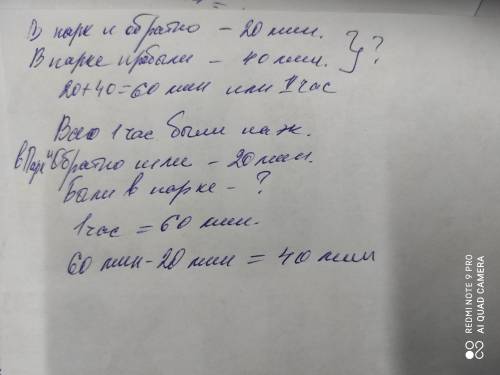 В парк и обратно – 20 мин.
В парке пробыли – 40 мин. } ?
20+40=60 мин или 1 час
Всего 1 час были
в Парк и Обратно шли – 20 мин.
Были в парке – ?
1 час = 60 мин.
60 мин – 20 мин = 40 мин
REDMI NOTE 9 PRO
AI QUAD CAMERA